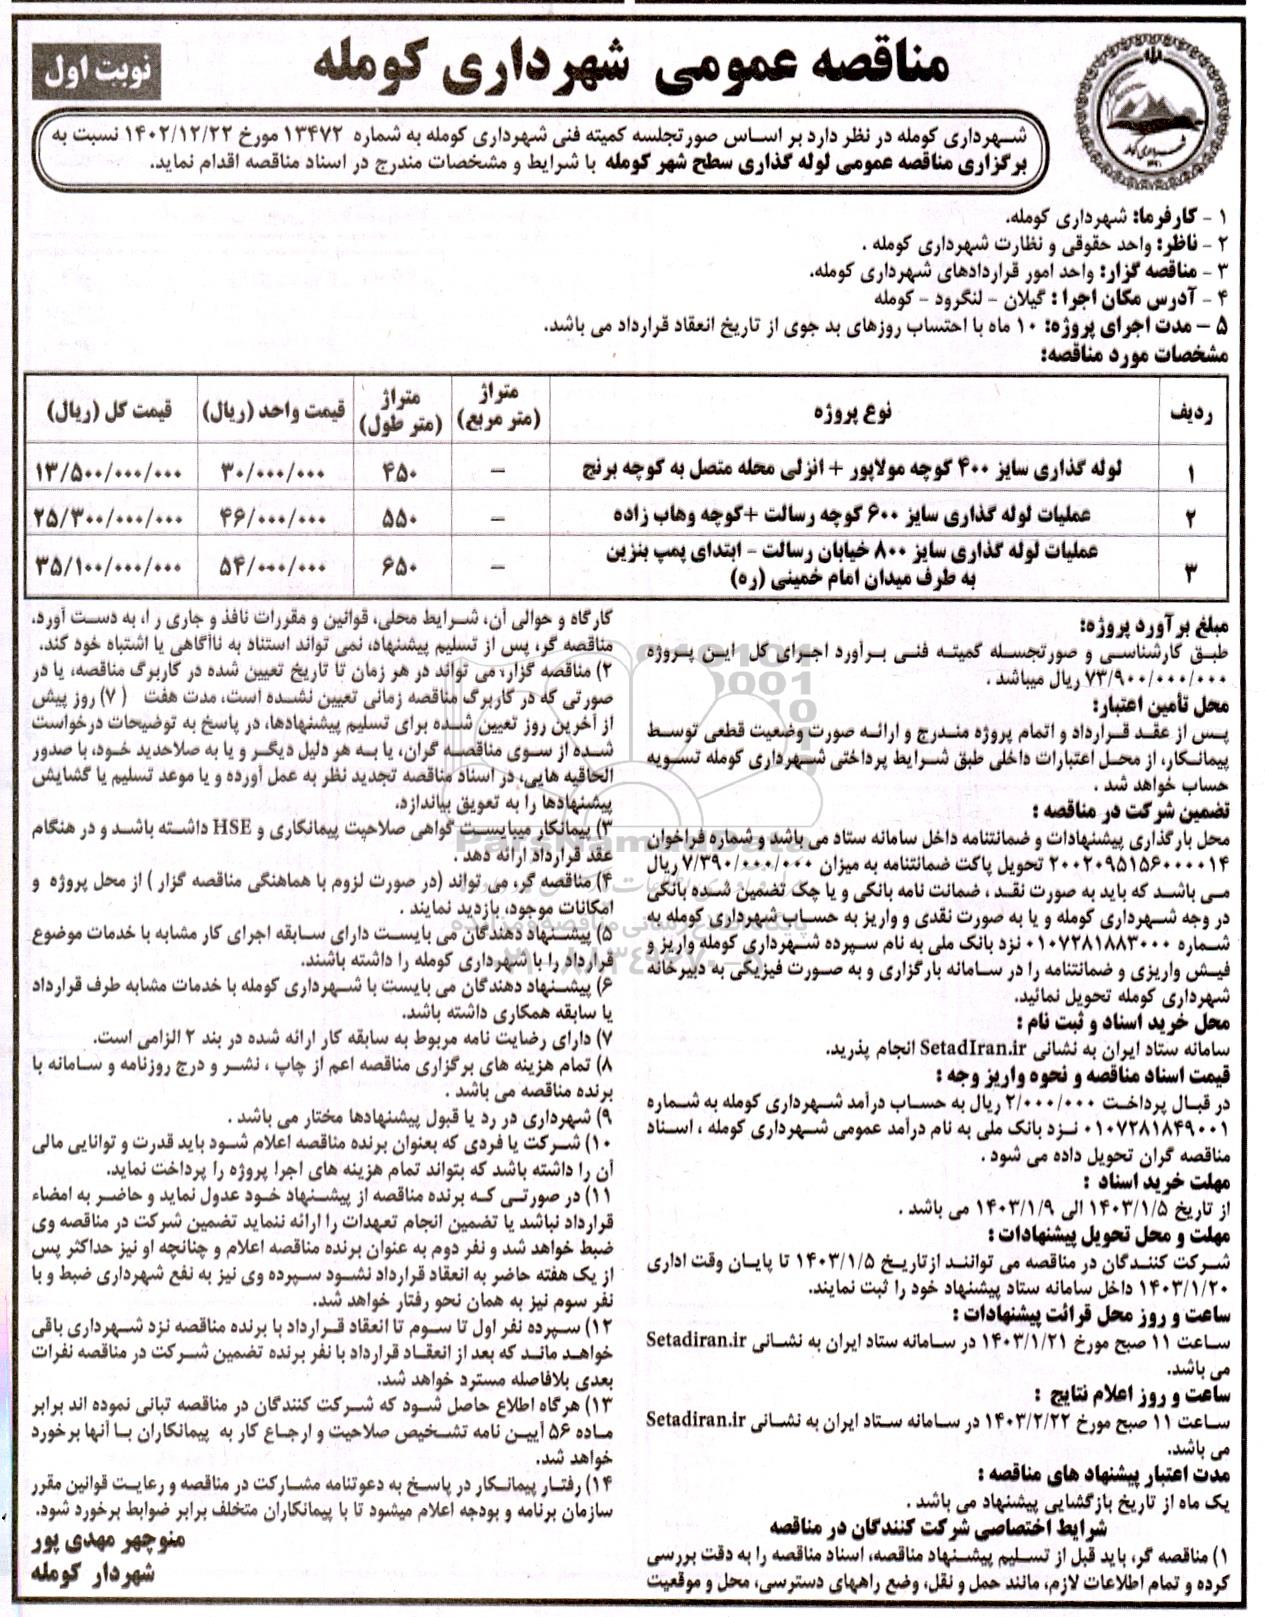 مناقصه عمومی شهرداری کومله
نوبت اول
شهرداری کومله در نظر دارد بر اساس صورتجلسه کمیته فنی شهرداری کومله به شماره ۱۳۴۷۲ مورخ ۱۴۰۲/۱۲/۲۲ نسبت به
برگزاری مناقصه عمومی لوله گذاری سطح شهر کومله با شرایط و مشخصات مندرج در اسناد مناقصه اقدام نماید.
۱ - کارفرما: شهرداری کومله.
۲ - ناظر: واحد حقوقی و نظارت شهرداری کومله .
۳ - مناقصه گزار: واحد امور قراردادهای شهرداری کومله.
۴ - آدرس مکان اجرا : گیلان - لنگرود - کومله
۵ - مدت اجرای پروژه: ۱۰ ماه با احتساب روزهای بد جوی از تاریخ انعقاد قرارداد می باشد.
مشخصات مورد مناقصه:
ردیف نوع پروژه متراژ (متر مربع) متراژ (متر طول) قیمت واحد (ریال) قیمت کل (ریال)
۱ لوله گذاری سایز ۴۰۰ کوچه مولاپور + انزلی محله متصل به کوچه برنج – ۴۵۰ ۳۰/۰۰۰/۰۰۰ ۱۳/۵۰۰/۰۰۰/۰۰۰
۲ عملیات لوله گذاری سایز ۶۰۰ کوچه رسالت +کوچه وهاب زاده – ۵۵۰ ۴۶/۰۰۰/۰۰۰ ۲۵/۳۰۰/۰۰۰/۰۰۰
۳ عملیات لوله گذاری سایز ۸۰۰ خیابان رسالت - ابتدای پمپ بنزین
به طرف میدان امام خمینی (ره) – ۶۵۰ ۵۴/۰۰۰/۰۰۰ ۳۵/۱۰۰/۰۰۰/۰۰۰
مبلغ برآورد پروژه:
طبق کارشناسی و صورتجسله کمیته فنی برآورد اجرای کل این پروژه
۷۳/۹۰۰/۰۰۰/۰۰۰ ریال میباشد .
محل تأمین اعتبار:
پس از عقد قرارداد و اتمام پروژه مندرج و ارائه صورت وضعیت قطعی توسط
پیمانکار، از محل اعتبارات داخلی طبق شرایط پرداختی شهرداری کومله تسویه
حساب خواهد شد .
تضمین شرکت در مناقصه :
محل بارگذاری پیشنهادات و ضمانتنامه داخل سامانه ستاد می باشد و شماره فراخوان
۲۰۰۲۰۹۵۱۵۶۰۰۰۰۱۴ تحویل پاکت ضمانتنامه به میزان ۷/۳۹۰/۰۰۰/۰۰۰ ریال
می باشد که باید به صورت نقد ، ضمانت نامه بانکی و یا چک تضمین شده بانکی
در وجه شهرداری کومله و یا به صورت نقدی و واریز به حساب شهرداری کومله به
شماره ۰۱۰۷۲۸۱۸۸۳۰۰۰ نزد بانک ملی به نام سپرده شهرداری کومله واریز و
فیش واریزی و ضمانتنامه را در سامانه بارگزاری و به صورت فیزیکی به دبیرخانه
شهرداری کومله تحویل نمائید.
محل خرید اسناد و ثبت نام :
سامانه ستاد ایران به نشانی SetadIran.ir انجام پذرید.
قیمت اسناد مناقصه و نحوه واریز وجه :
در قبال پرداخت ۲/۰۰۰/۰۰۰ ریال به حساب درآمد شهرداری کومله به شماره
۰۱۰۷۲۸۱۸۴۹۰۰۱ نزد بانک ملی به نام درآمد عمومی شهرداری کومله ، اسناد
مناقصه گران تحویل داده می شود .
مهلت خرید اسناد :
از تاریخ ۱۴۰۳/۱/۵ الی ۱۴۰۳/۱/۹ می باشد .
مهلت و محل تحویل پیشنهادات :
شرکت کنندگان در مناقصه می توانند ازتاریخ ۱۴۰۳/۱/۵ تا پایان وقت اداری
۱۴۰۳/۱/۲۰ داخل سامانه ستاد پیشنهاد خود را ثبت نمایند.
ساعت و روز محل قرائت پیشنهادات :
ساعت ۱۱ صبح مورخ ۱۴۰۳/۱/۲۱ در سامانه ستاد ایران به نشانی Setadiran.ir
می باشد.
ساعت و روز اعلام نتایج :
ساعت ۱۱ صبح مورخ ۱۴۰۳/۲/۲۲ در سامانه ستاد ایران به نشانی Setadiran.ir
می باشد.
مدت اعتبار پیشنهاد های مناقصه :
یک ماه از تاریخ بازگشایی پیشنهاد می باشد .
شرایط اختصاصی شرکت کنندگان در مناقصه
۱) مناقصه گر، باید قبل از تسلیم پیشنهاد مناقصه، اسناد مناقصه را به دقت بررسی
کرده و تمام اطلاعات لازم، مانند حمل و نقل، وضع راههای دسترسی، محل و موقعیت
کارگاه و حوالی آن، شرایط محلی، قوانین و مقررات نافذ و جاری را، به دست آورد.
مناقصه گر، پس از تسلیم پیشنهاد، نمی تواند استناد به ناآگاهی یا اشتباه خود کند.
۲) مناقصه گزار، می تواند در هر زمان تا تاریخ تعیین شده در کاربرگ مناقصه، یا در
صورتی که در کاربرگ مناقصه زمانی تعیین نشده است، مدت هفت (۷) روز پیش
از آخرین روز تعیین شده برای تسلیم پیشنهادها، در پاسخ به توضیحات درخواست
شده از سوی مناقصه گران، یا به هر دلیل دیگر و یا به صلاحدید خود، با صدور
الحاقیه هایی، در اسناد مناقصه تجدید نظر به عمل آورده و یا موعد تسلیم یا گشایش
پیشنهادها را به تعویق بیاندازد.
۳) پیمانکار میبایست گواهی صلاحیت پیمانکاری و HSE داشته باشد و در هنگام
عقد قرارداد ارائه دهد .
۴) مناقصه گر، می تواند (در صورت لزوم با هماهنگی مناقصه گزار ) از محل پروژه و
امکانات موجود، بازدید نمایند .
۵) پیشنهاد دهندگان می بایست دارای سابقه اجرای کار مشابه با خدمات موضوع
قرارداد را با شهرداری کومله را داشته باشند.
۶) پیشنهاد دهندگان می بایست با شهرداری کومله با خدمات مشابه طرف قرارداد
یا سابقه همکاری داشته باشد.
۷) دارای رضایت نامه مربوط به سابقه کار ارائه شده در بند ۲ الزامی است.
۸) تمام هزینه های برگزاری مناقصه اعم از چاپ ، نشر و درج روزنامه و سامانه با
برنده مناقصه می باشد .
۹) شهرداری در رد یا قبول پیشنهادها مختار می باشد .
۱۰) شرکت یا فردی که بعنوان برنده مناقصه اعلام شود باید قدرت و توانایی مالی
آن را داشته باشد که بتواند تمام هزینه های اجرا پروژه را پرداخت نماید.
۱۱) در صورتی که برنده مناقصه از پیشنهاد خود عدول نماید و حاضر به امضاء
قرارداد نباشد یا تضمین انجام تعهدات را ارائه ننماید تضمین شرکت در مناقصه وی
ضبط خواهد شد و نفر دوم به عنوان برنده مناقصه اعلام و چنانچه او نیز حداکثر پس
از یک هفته حاضر به انعقاد قرارداد نشود سپرده وی نیز به نفع شهرداری ضبط و با
نفر سوم نیز به همان نحو رفتار خواهد شد.
۱۲) سپرده نفر اول تا سوم تا انعقاد قرارداد با برنده مناقصه نزد شهرداری باقی
خواهد ماند که بعد از انعقاد قرارداد با نفر برنده تضمین شرکت در مناقصه نفرات
بعدی بلافاصله مسترد خواهد شد.
۱۳) هرگاه اطلاع حاصل شود که شرکت کنندگان در مناقصه تبانی نموده اند برابر
ماده ۵۶ آیین نامه تشخیص صلاحیت و ارجاع کار به پیمانکاران با آنها برخورد
خواهد شد.
۱۴) رفتار پیمانکار در پاسخ به دعوتنامه مشارکت در مناقصه و رعایت قوانین مقرر
سازمان برنامه و بودجه اعلام میشود تا با پیمانکاران متخلف برابر ضوابط برخورد شود.
منوچهر مهدی پور
شهردار کومله